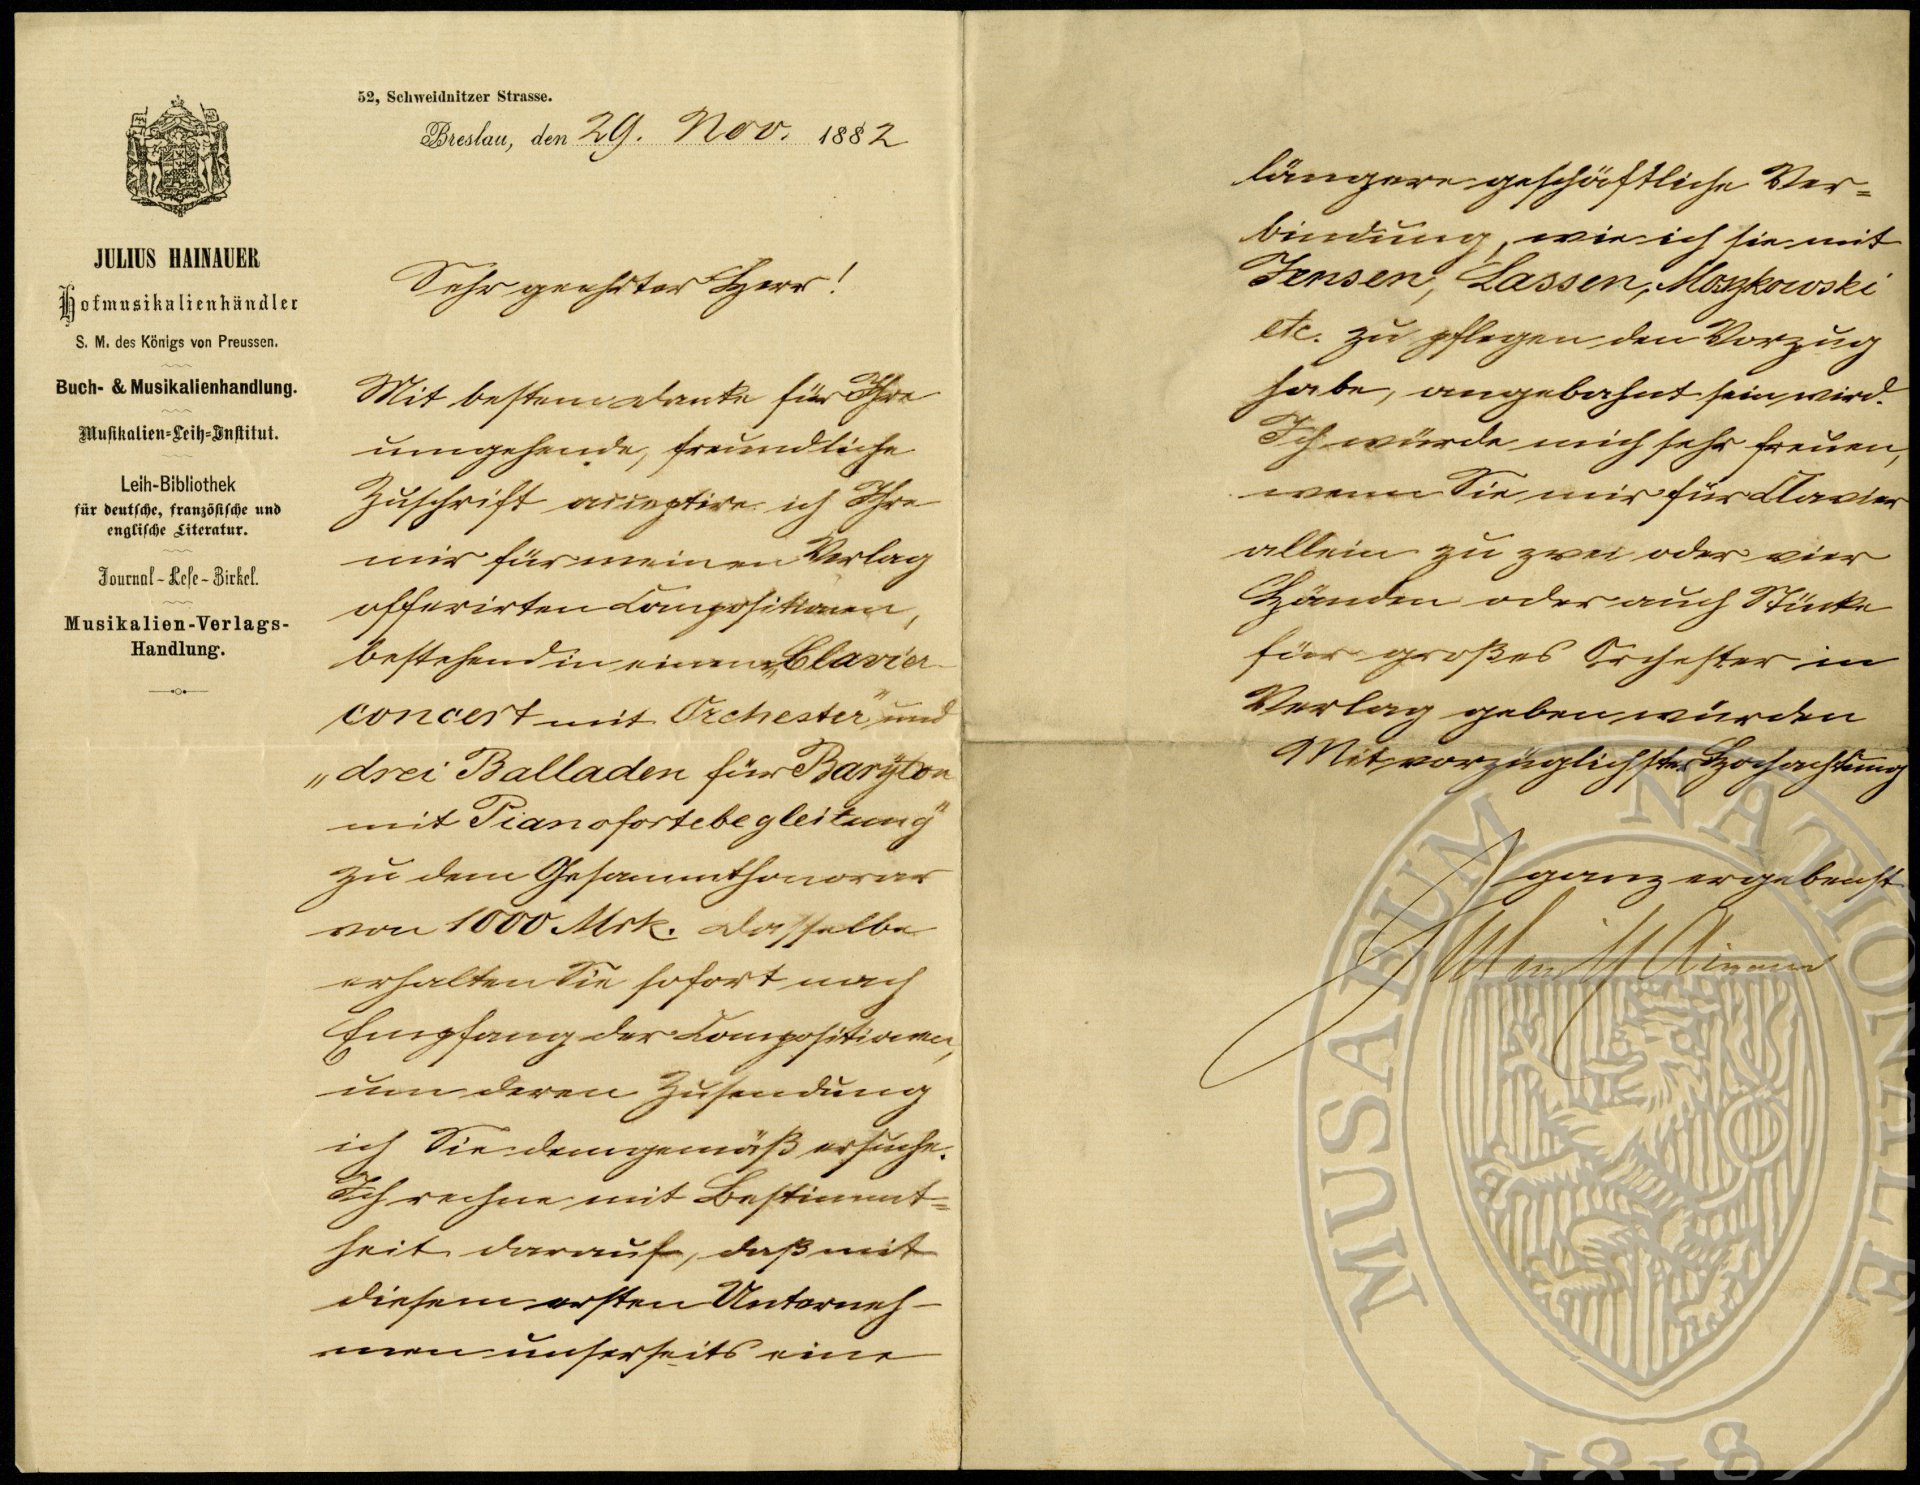 52, Schweidnitzer Strasse.
Breslau, den 29. Nov. 1882
JULIUS HAINAUER
Hofmusikalienhändler
S. M. des Königs von Preussen.
Buch- & Musikalienhandlung.
Musikalien-Leih-Institut.
Leih-Bibliothek
für deutsche, französische und
englische Literatur.
Journal-Lese-Zirkel.
Musikalien-Verlags-
Handlung.
Sehr geehrter Herr!
Mit bestem Danke für Ihre
umgehende, freundliche
Zuschrift acceptire ich Ihre
mir für meinen Verlag
offerirten Compositionen,
bestehend in einem „Clavier
concert mit Orchester" und
„drei Balladen für Baryton
mit Pianofortebegleitung"
zu dem Gesammthonorar
von 1000 Mrk. Dasselbe
erhalten Sie sofort nach
Empfang der Compositionen,
um deren Zusendung
ich Sie demgemäß ersuche.
Ich rechne mit Bestimmt=
heit darauf, daß mit
diesem ersten Unterneh-
men unserseits eine
längere geschäftliche Ver=
bindung, wie ich sie mit
Jensen, Lassen, Moszkowski
etc. zu pflegen den Vorzug
habe, angebahnt sein wird.
Ich würde mich sehr freuen,
wenn Sie mir für Clavier
allein zu zwei oder vier
Händen oder auch Stücke
für großes Orchester in
Verlag geben würden
Mit vorzüglichster Hochachtung
ganz ergebenst
Julius Hainauer
MUSAEUM NATIONALE
1818